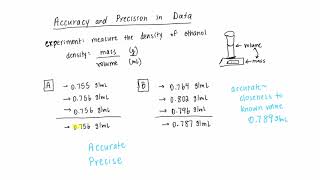 Accuracy and Precision in Data
experiment: measure the density of ethanol
density: mass (g)
volume (mL)
volume
mass
A
→ 0.755 g/mL
→ 0.756 g/mL
→ 0.756 g/mL
→ 0.756 g/mL
B
→ 0.764 g/mL
→ 0.802 g/mL
→ 0.796 g/mL
→ 0.787 g/mL
accurate~
closeness to
known value
0.789 g/mL
Accurate
Precise